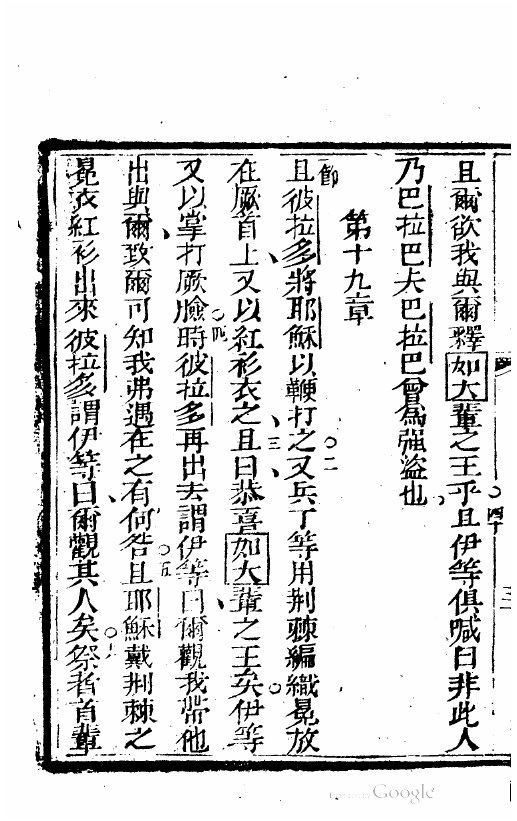 且爾欲我與爾釋如大輩之王乎○四十且伊等俱喊曰非此人
乃巴拉巴夫巴拉巴曾為強盜也
第十九章
節且彼拉多將耶穌以鞭打之○二又兵丁等用荊棘編織冕放
在厥首上又以紅衫衣之○三且曰恭喜如大輩之王矣伊等
又以掌打厥臉○四時彼拉多再出去謂伊等曰爾觀我帶他
出與爾致爾可知我弗遇在之有何咎○五且耶穌戴荊棘之
冕衣紅衫出來彼拉多謂伊等曰爾觀其人矣○六祭者首輩
三
Google